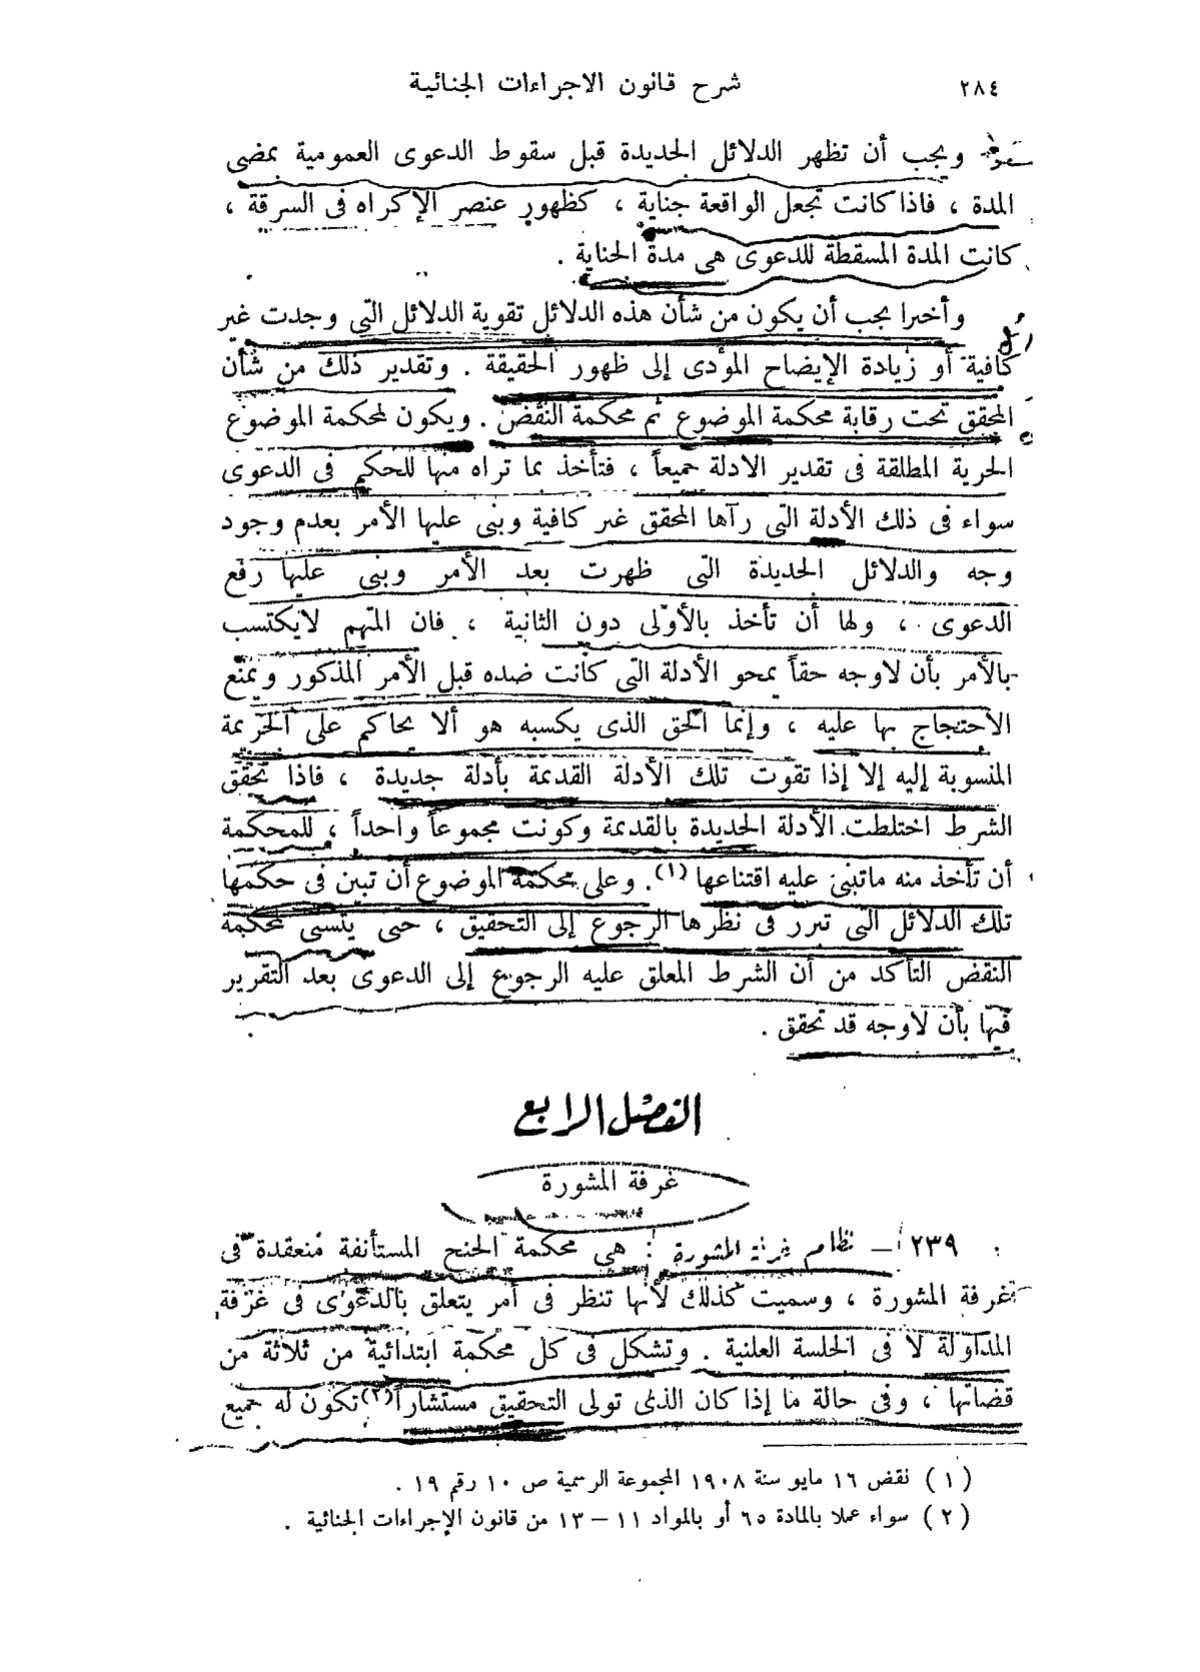 ٢٨٤ شرح قانون الاجراءات الجنائية
ويجب أن تظهر الدلائل الجديدة قبل سقوط الدعوى العمومية بمضى
المدة ، فاذا كانت تجعل الواقعة جناية ، كظهور عنصر الإكراه فى السرقة ،
كانت المدة المسقطة للدعوى هى مدة الجناية .
وأخيرا يجب أن يكون من شأن هذه الدلائل تقوية الدلائل التى وجدت غير
كافية أو زيادة الإيضاح المؤدى إلى ظهور الحقيقة . وتقدير ذلك من شأن
المحقق تحت رقابة محكمة الموضوع ثم محكمة النقض . ويكون لمحكمة الموضوع
الحرية المطلقة فى تقدير الادلة جميعاً ، فتأخذ بما تراه منها للحكم فى الدعوى
سواء فى ذلك الأدلة التى رآها المحقق غير كافية وبنى عليها الأمر بعدم وجود
وجه والدلائل الجديدة التى ظهرت بعد الأمر وبنى عليها رفع
الدعوى ، ولها أن تأخذ بالأولى دون الثانية ، فان المتهم لايكتسب
بالأمر بأن لاوجه حقاً يمحو الأدلة التى كانت ضده قبل الأمر المذكور ويمنع
الاحتجاج بها عليه ، وإنما الحق الذى يكسبه هو ألا يحاكم على الجريمة
المنسوبة إليه إلا إذا تقوت تلك الأدلة القديمة بأدلة جديدة ، فاذا تحقق
الشرط اختلطت الأدلة الجديدة بالقديمة وكونت مجموعاً واحداً ، للمحكمة
أن تأخذ منه ماتبنى عليه اقتناعها (١). وعلى محكمة الموضوع أن تبين فى حكمها
تلك الدلائل التى تبرر فى نظرها الرجوع إلى التحقيق ، حتى يتسنى لمحكمة
النقض التأكد من أن الشرط المعلق عليه الرجوع إلى الدعوى بعد التقرير
فيها بأن لاوجه قد تحقق .
الفصل الرابع
غرفة المشورة
٢٣٩ – نظام غرفة المشورة : هى محكمة الجنح المستأنفة منعقدة فى
غرفة المشورة ، وسميت كذلك لأنها تنظر فى أمر يتعلق بالدعوى فى غرفة
المداولة لا فى الجلسة العلنية . وتشكل فى كل محكمة ابتدائية من ثلاثة من
قضاتها ، وفى حالة ما إذا كان الذى تولى التحقيق مستشاراً(٢) تكون له جميع
(١) نقض ١٦ مايو سنة ١٩٠٨ المجموعة الرسمية ص ١٠ رقم ١٩ .
(٢) سواء عملا بالمادة ٦٥ أو بالمواد ١١ – ١٣ من قانون الإجراءات الجنائية .